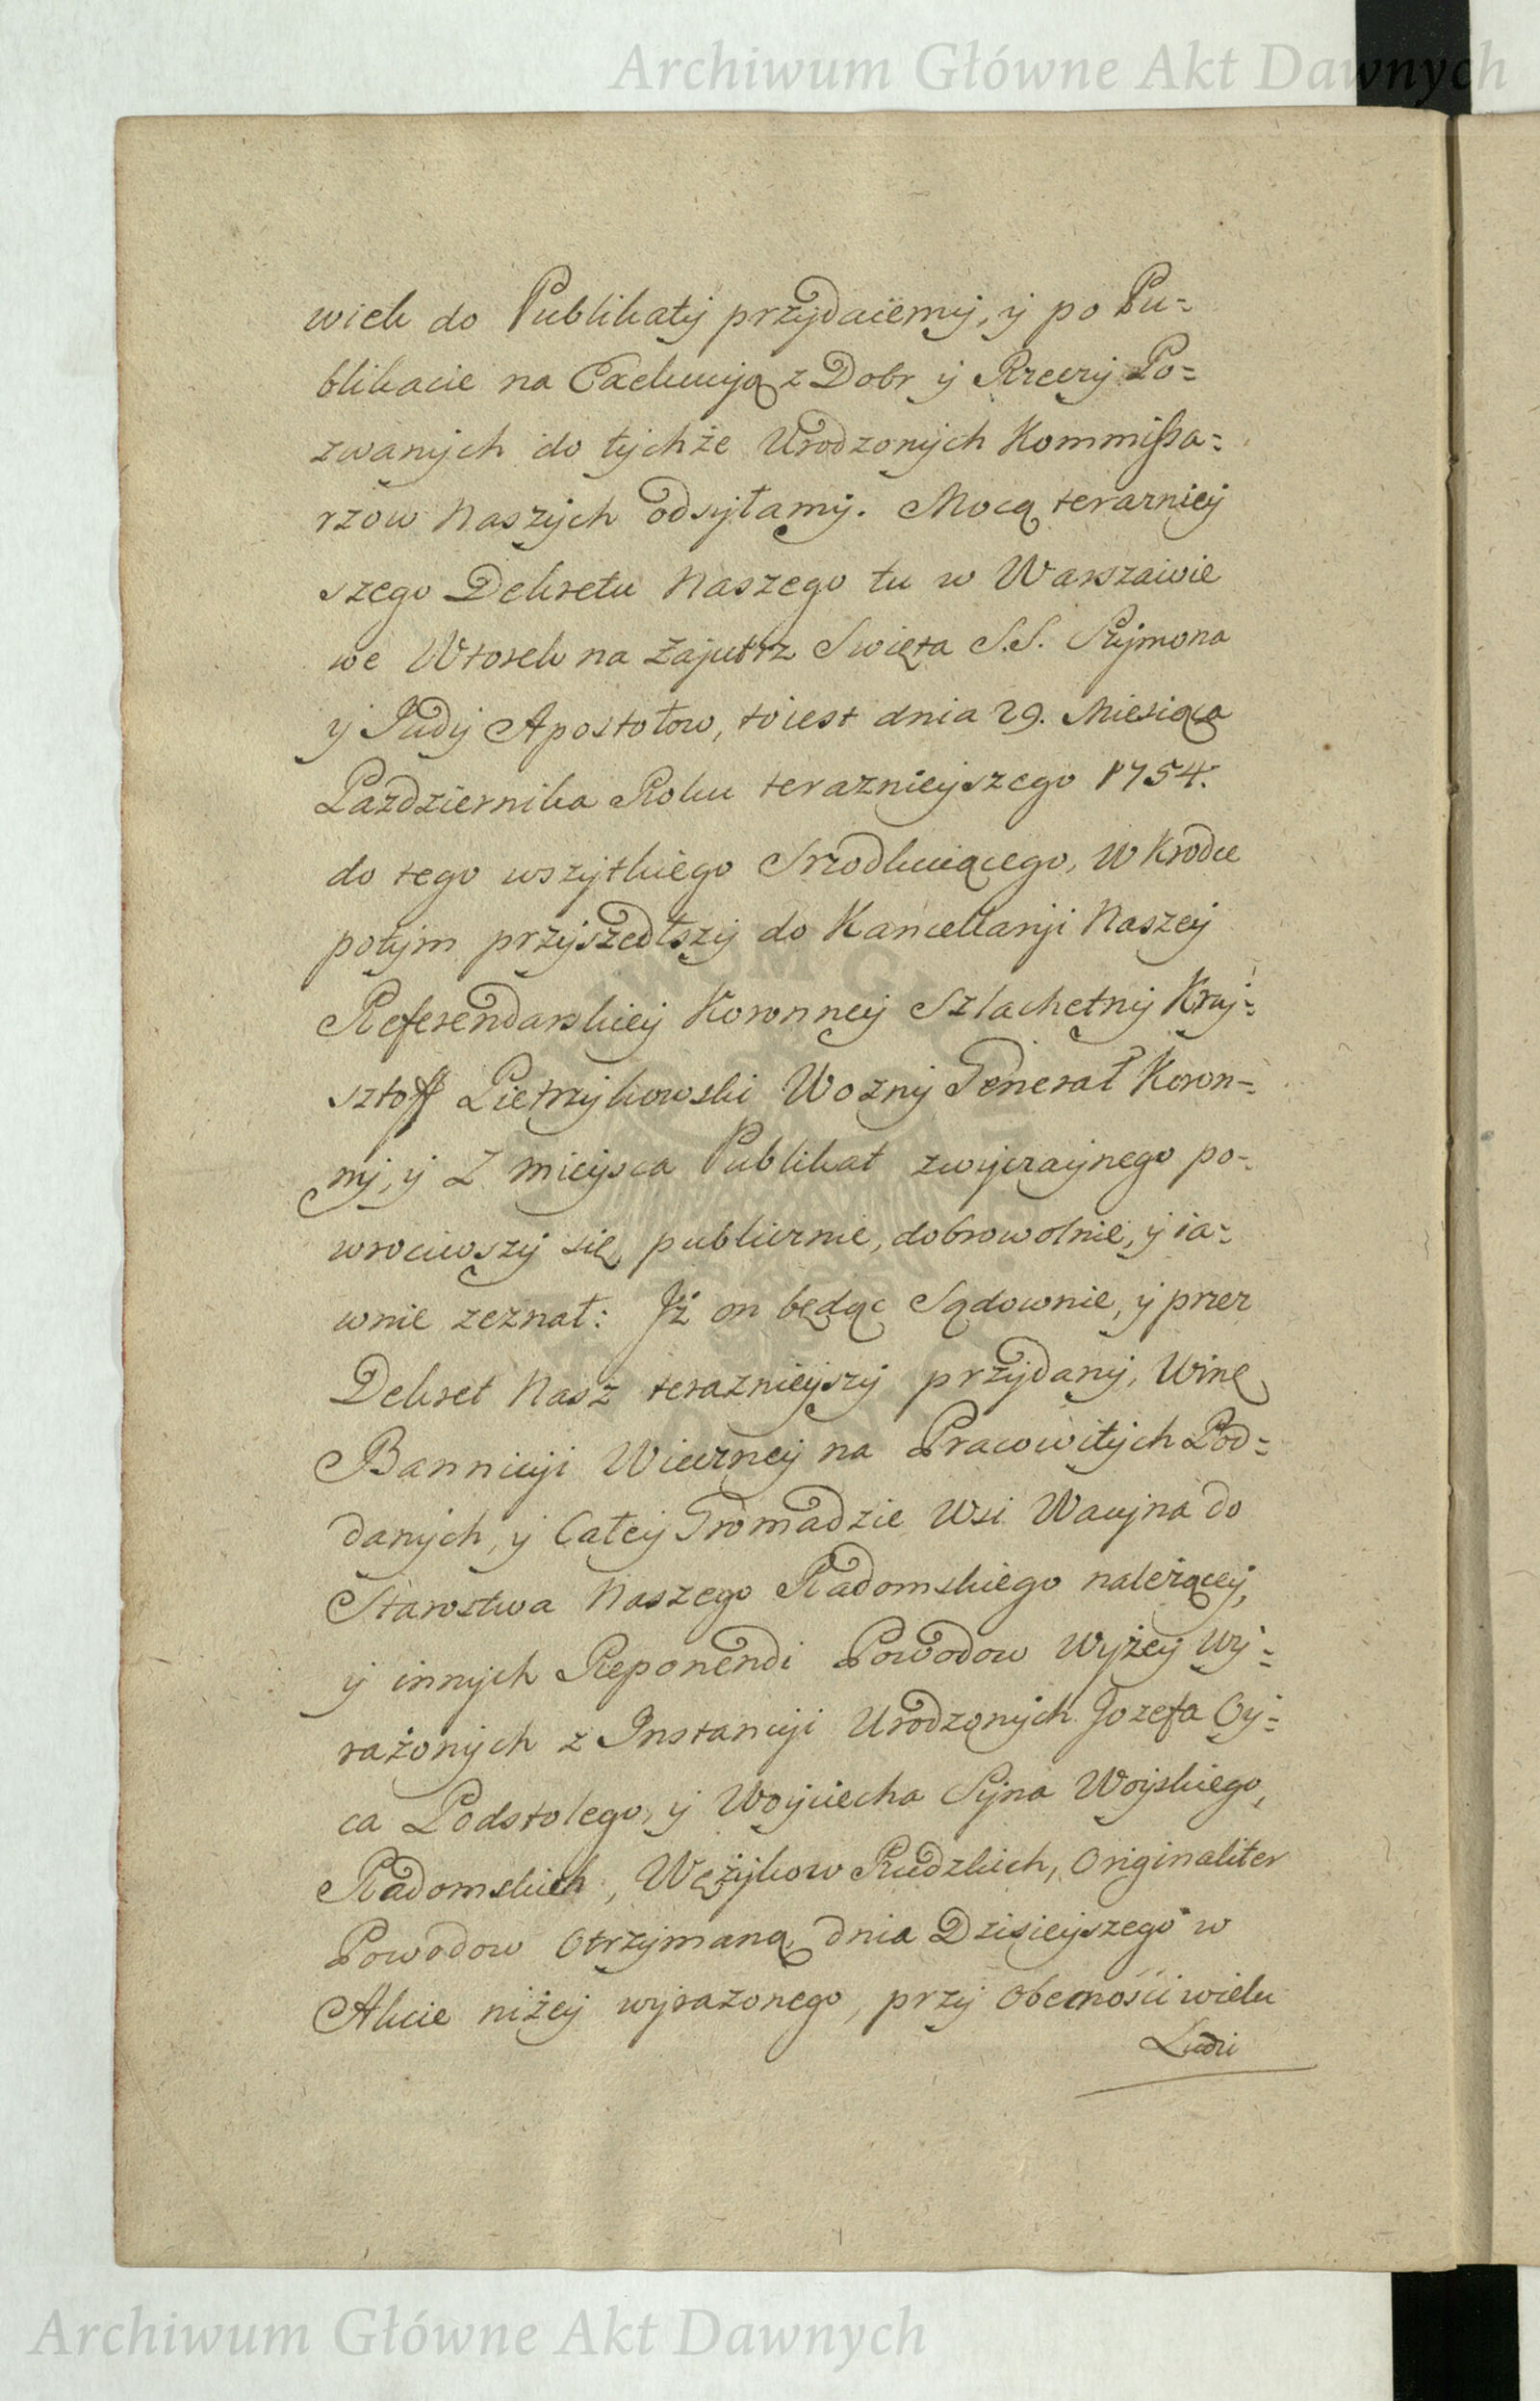 Archiwum Główne Akt Dawnych
wiek do Publikaty przydaiemy, y po Pu=
blikacie na Exekucyą z Dobr y Rzeczy Po=
zwanych do tychże Urodzonych Kommissa=
rzow Naszych odsyłamy. Mocą terazniey
szego Dekretu Naszego tu w Warszawie
we Wtorek na Zajutrz Swięta S.S. Szymona
y Judy Apostołow, toiest dnia 29. Miesiąca
Pazdziernika Roku teraznieyszego 1754.
do tego wszytkiego Srzodkuiącego, W krodce
potym przyszedłszy do Kancellaryi Naszey
Referendarskiey Koronney Szlachetny Krzy=
sztoff Pietrzykowski Wozny Generał Koron=
ny, y Z mieysca Publikat zwyczaynego po=
wrociwszy się, publicznie, dobrowolnie, y ia=
wnie zeznał: Iż on będąc Sądownie, y przez
Dekret Nasz teraznieyszy przydany, Winę
Bannicyi Wieczney na Pracowitych Pod=
danych, y Całey Gromadzie Wsi Wacyna do
Starostwa Naszego Radomskiego należącey,
y innych Reponendi Powodow Wyżey wy=
rażonych z Instancyi Urodzonych Jozefa Oy=
ca Podstolego, y Woyciecha Syna Woyskiego,
Radomskich, Wężykow Rudzkich, Originaliter
Powodow Otrzymaną, dnia Dzisieyszego w
Akcie niżey wyrażonego, przy Obecności wielu
Ludzi
Archiwum Główne Akt Dawnych